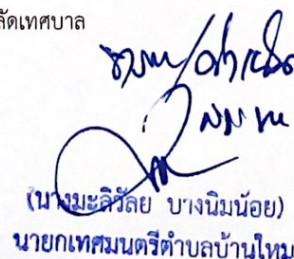 ลัดเทศบาล
ทราบ/ดำเนิน
(นางมะลิวัลย์ บางนิ่มน้อย)
นายกเทศมนตรีตำบลบ้านใหม่